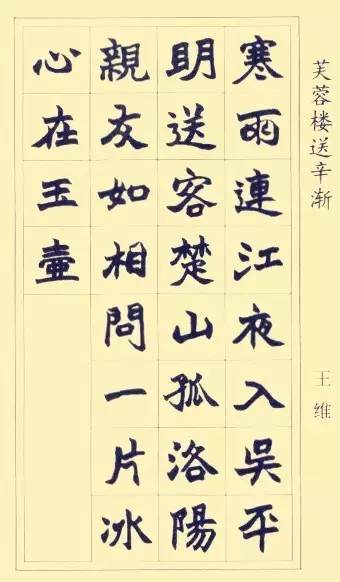 芙蓉楼送辛渐
王维
寒雨連江夜入吳平
明送客楚山孤洛陽
親友如相問一片冰
心在玉壺